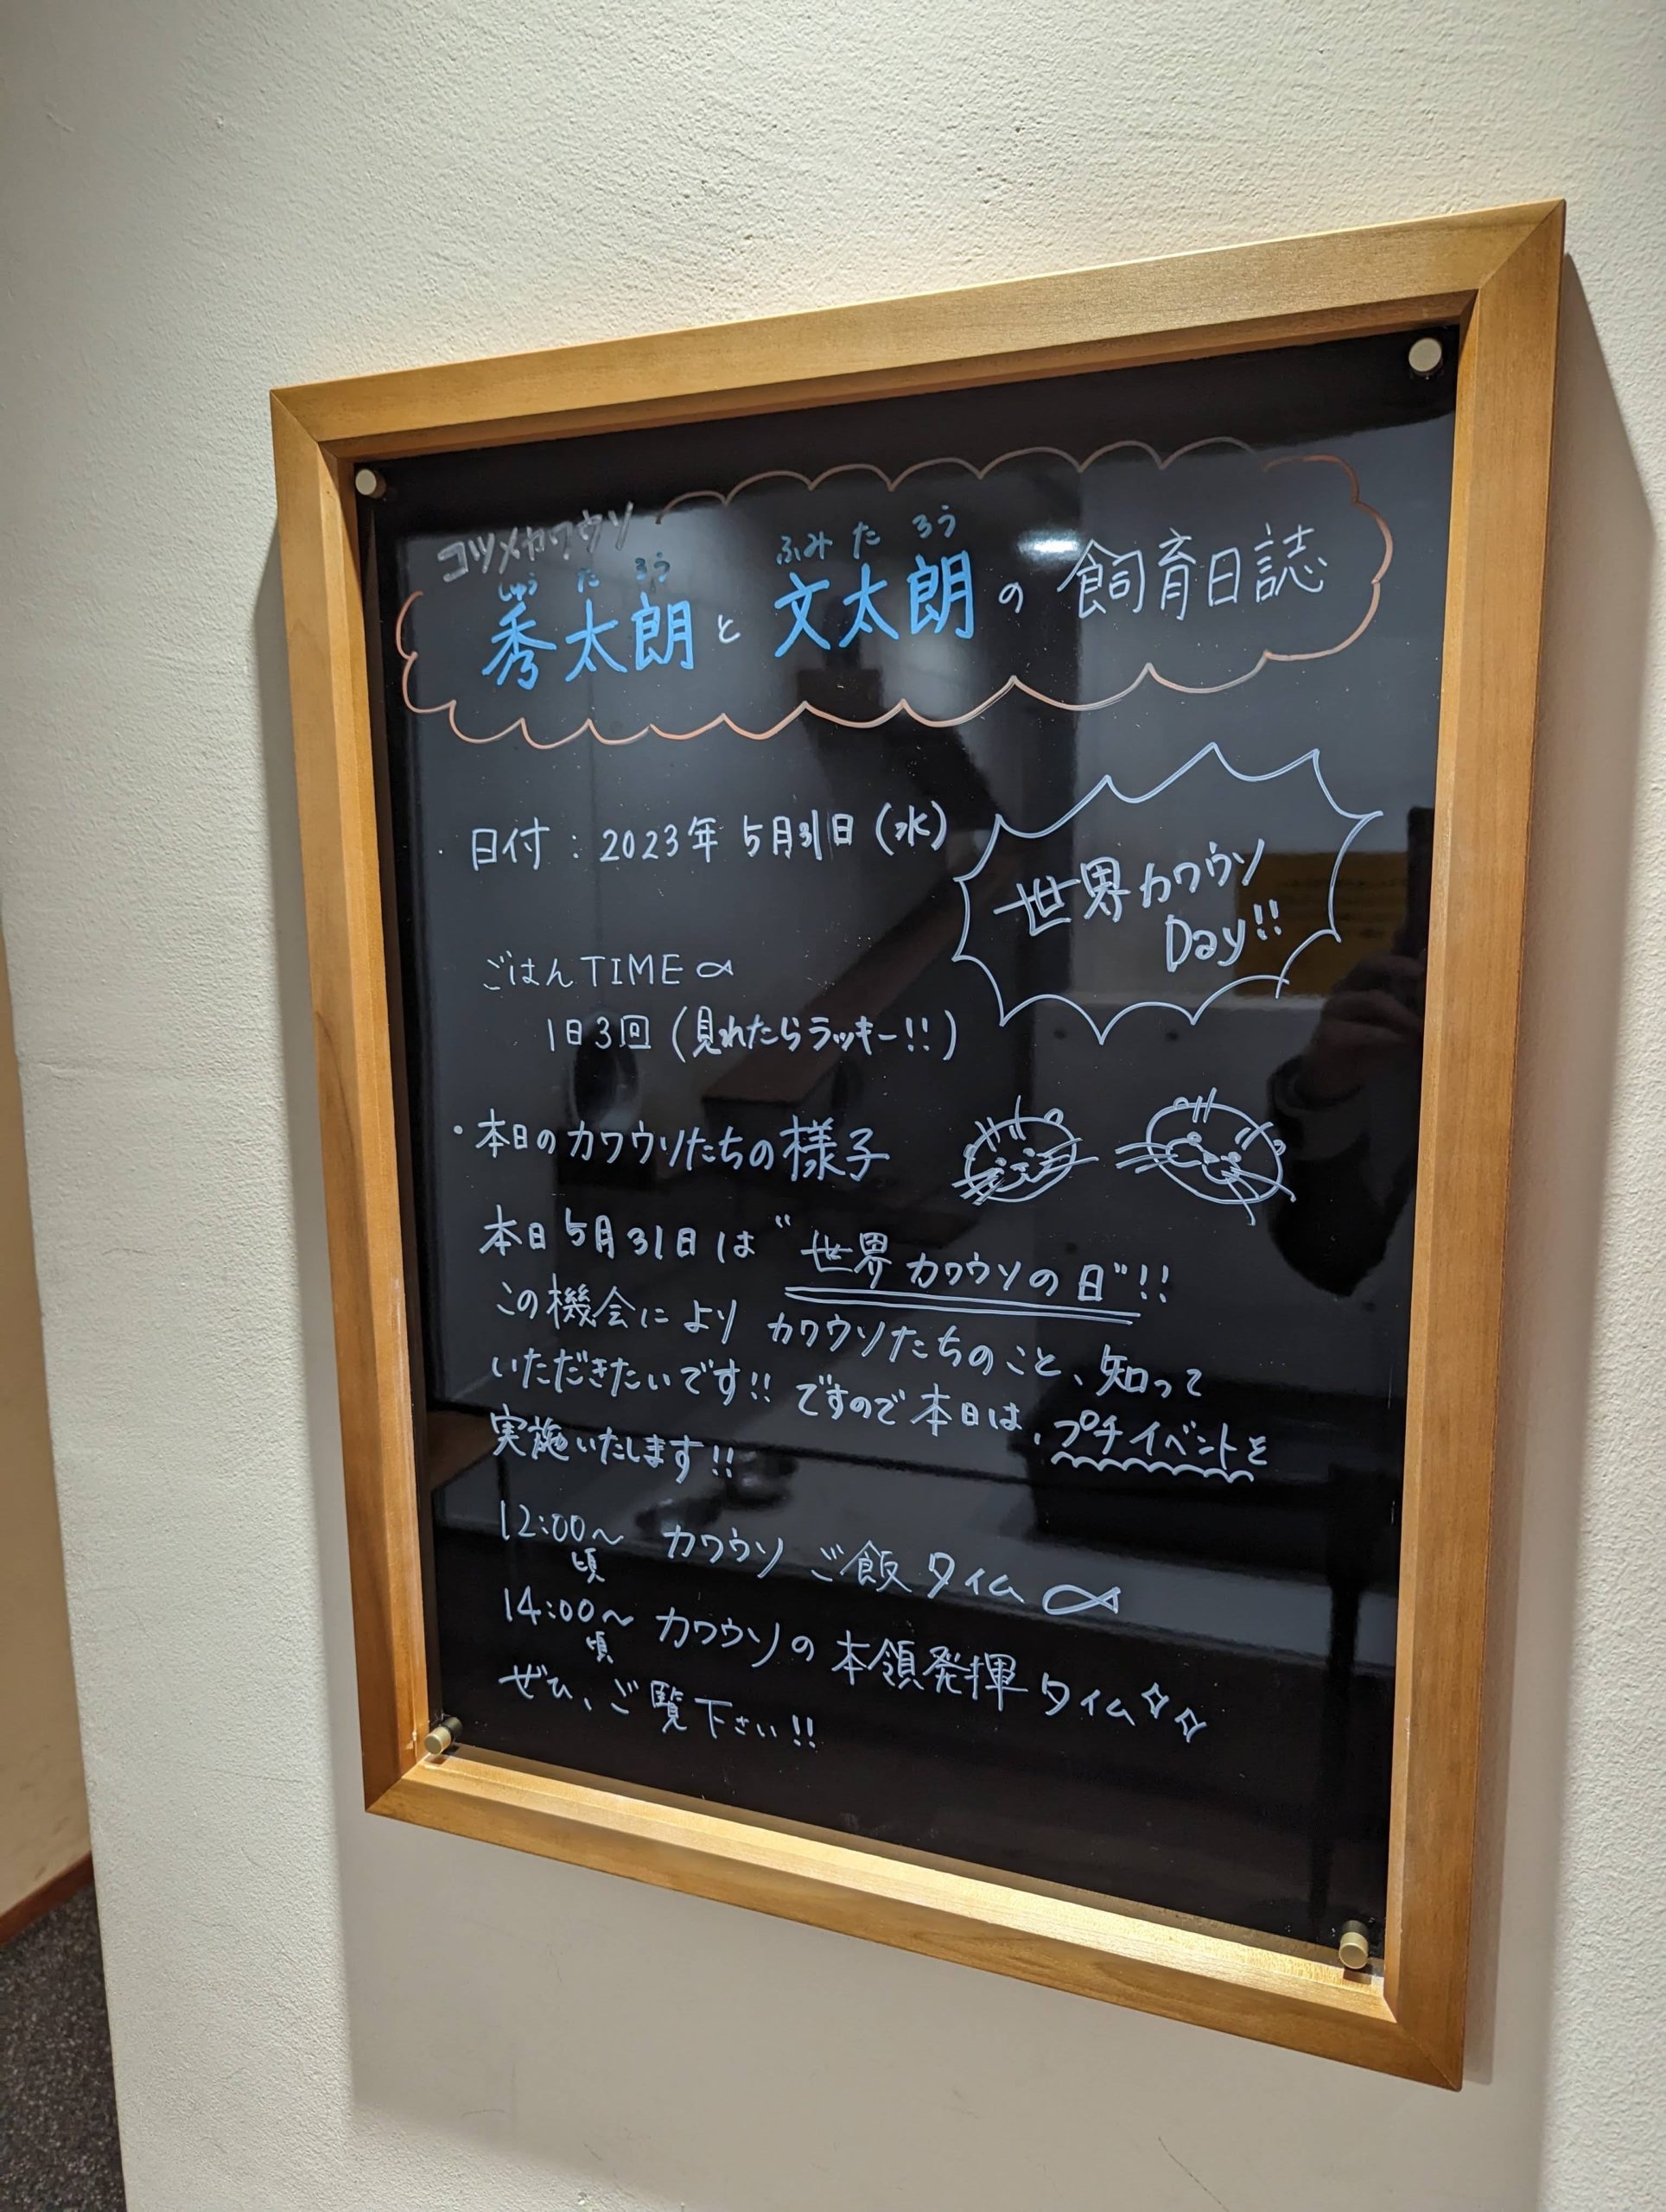 コツメカワウソ
しゅう た ろう ふみ た ろう
秀太朗と文太朗の飼育日誌
・日付:2023年5月31日(水)
世界カワウソ
Day!!
ごはんTIME
1日3回(見れたらラッキー!!)
・本日のカワウソたちの様子
本日5月31日は"世界カワウソの日"!!
この機会によりカワウソたちのこと、知って
いただきたいです!!ですので本日は、プチイベントを
実施いたします!!
12:00~ カワウソご飯タイム
頃
14:00~ カワウソの本領発揮タイム
頃
ぜひ、ご覧下さい!!